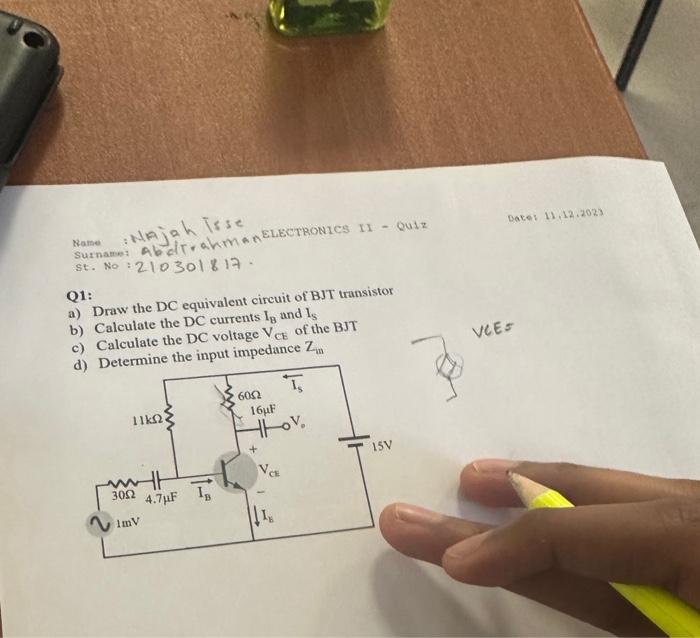 Name : Najah Isse
Surname: Abdirahman
St. No : 210301817.
ELECTRONICS II - Quiz
Date: 11.12.2023
Q1:
a) Draw the DC equivalent circuit of BJT transistor
b) Calculate the DC currents IB and Is
c) Calculate the DC voltage VCE of the BJT
d) Determine the input impedance Zin
VCE=
Is
60Ω
16μF
11kΩ
Vo
15V
+
VCE
-
30Ω 4.7μF IB
IE
1mV